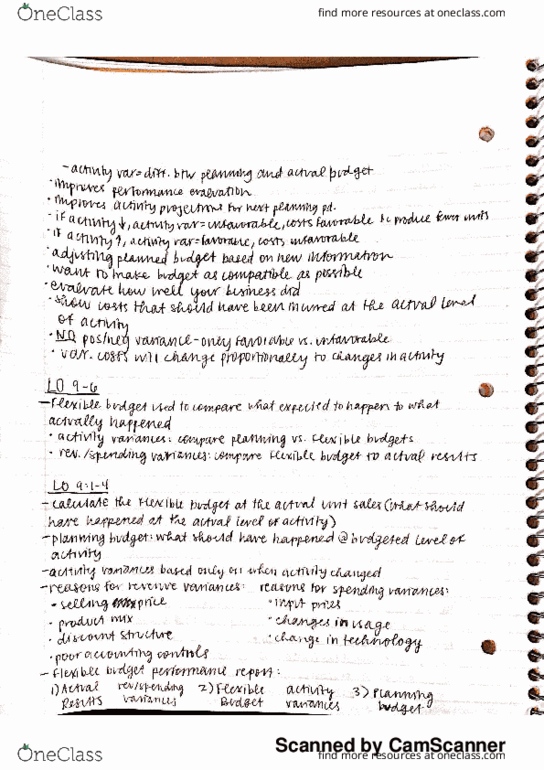 OneClass
find more resources at oneclass.com
-activity var= diff. btw planning and actual budget
·improves performance evaluation
·improves activity projections for next planning pd.
·if activity ↓, activity var= unfavorable, costs favorable bc produce fewer units
·if activity ↑, activity var= favorable, costs unfavorable
·adjusting planned budget based on new information
·want to make budget as compatible as possible
·evaluate how well your business did
·show costs that should have been incurred at the actual level
of activity
·NO pos/neg variance-only favorable vs. unfavorable
·var. costs will change proportionally to changes in activity
LO 9-6
-flexible budget used to compare what expected to happen to what
actually happened
·activity variances: compare planning vs. flexible budgets
·rev./spending variances: compare flexible budget to actual results
LO 9:1-4
-calculate the flexible budget at the actual unit sales (what should
have happened at the actual level of activity)
-planning budget: what should have happened @ budgeted level of
activity
-activity variances based only on when activity changed
-reasons for revenue variances: reasons for spending variances:
·selling price ·input prices
·product mix ·changes in usage
·discount structure ·change in technology
·poor accounting controls
-flexible budget performance report:
1) Actual rev/spending 2) Flexible activity 3) Planning
Results variances Budget variances budget
Scanned by CamScanner
OneClass
find more resources at oneclass.com